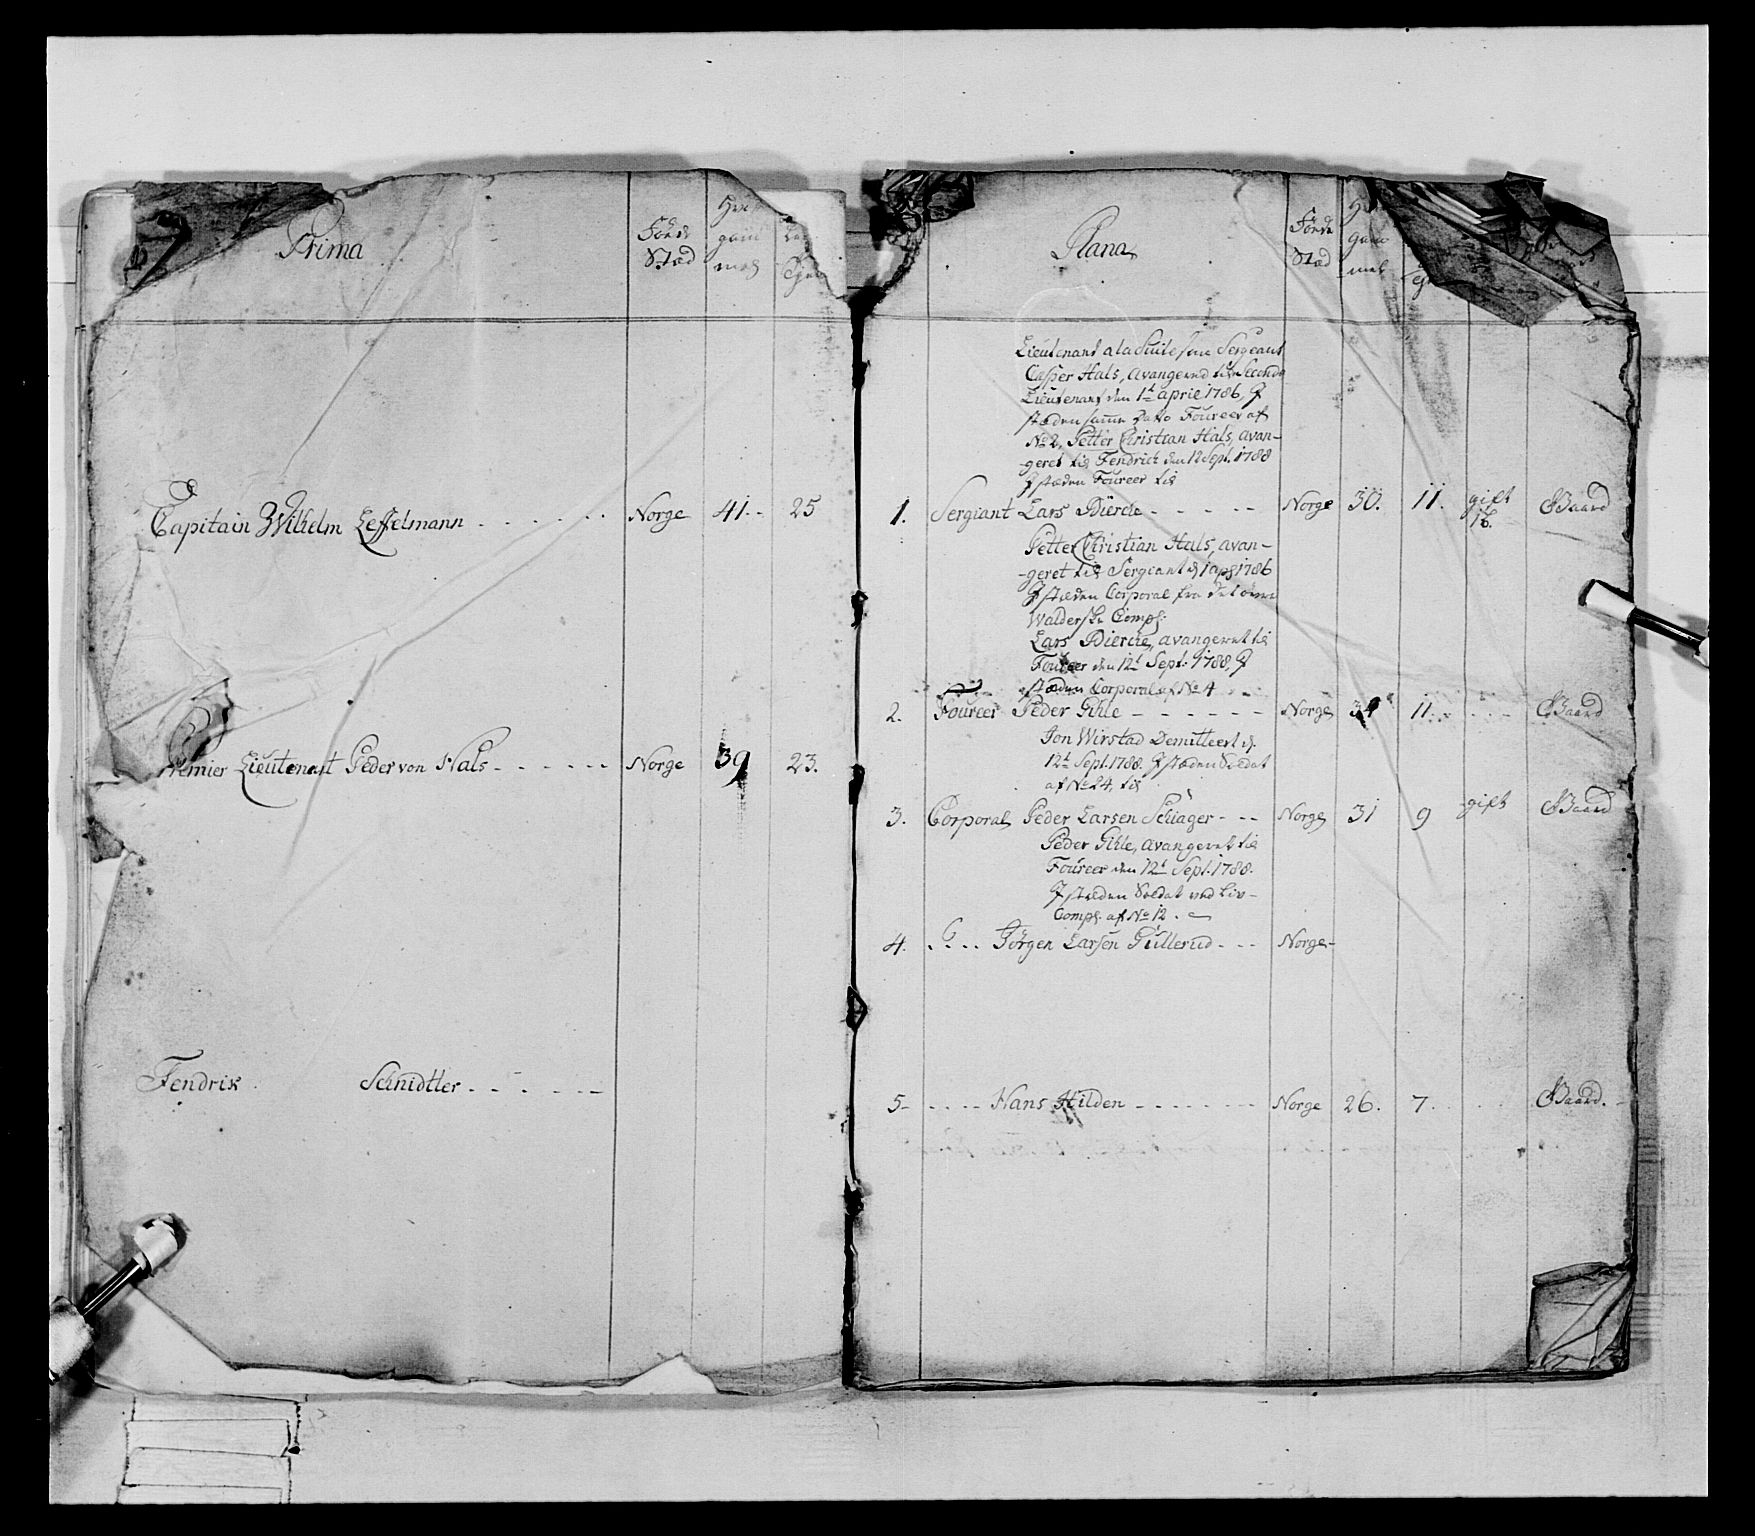 Prima
Föede
Stæd
gam
mel
Capitain Wilhelm Leffelmann - - - - - - Norge 41. - 25
Premier Lieutenant Peder von Hals - - - - - - Norge 39 23.
Fendrix Schnidtler - - - - - -
Plana
Föede
Stæd
gam
mel
Lieutenant a la Suite som Sergeant
Casper Hals, avangered til Seconde
Lieutenant den 1te april 1786, J
stæden samme Dato Foureer af
No 2, Petter Christian Hals, avan-
geret til Fendrich den 12 Sept. 1788
J stæden Foureer til
1. Sergiant Lars Bierche - - - - - Norge 30. 11. gift Gaard
Petter Christian Hals, avan-
geret til Sergiant d 1 apl 1786
J stæden Corporal fra det
Walderske Comp:
Lars Bierche, avangeret til
Foureer den 12t Sept: 1788, J
stæden Corporal af No 4
2. Foureer Peder Gihle - - - - - - Norge 34 11. - - - Gaard
Jon Wirstad Demitteert d.
12t Sept. 1788. J stæden Soldat
af No 24, til
3. Corporal Peder Larsen Schiager - - - Norge 31 9 gift Gaard
Peder Gihle, avangeret til
Foureer den 12t Sept. 1788.
J stæden Soldat ved Liv-
Comp: af No 12.
4. - - - Jörgen Larsen Gullerud - - - Norge-
5- - - - - Hans Hilden - - - - - - - Norge 26. 7. Gaard.